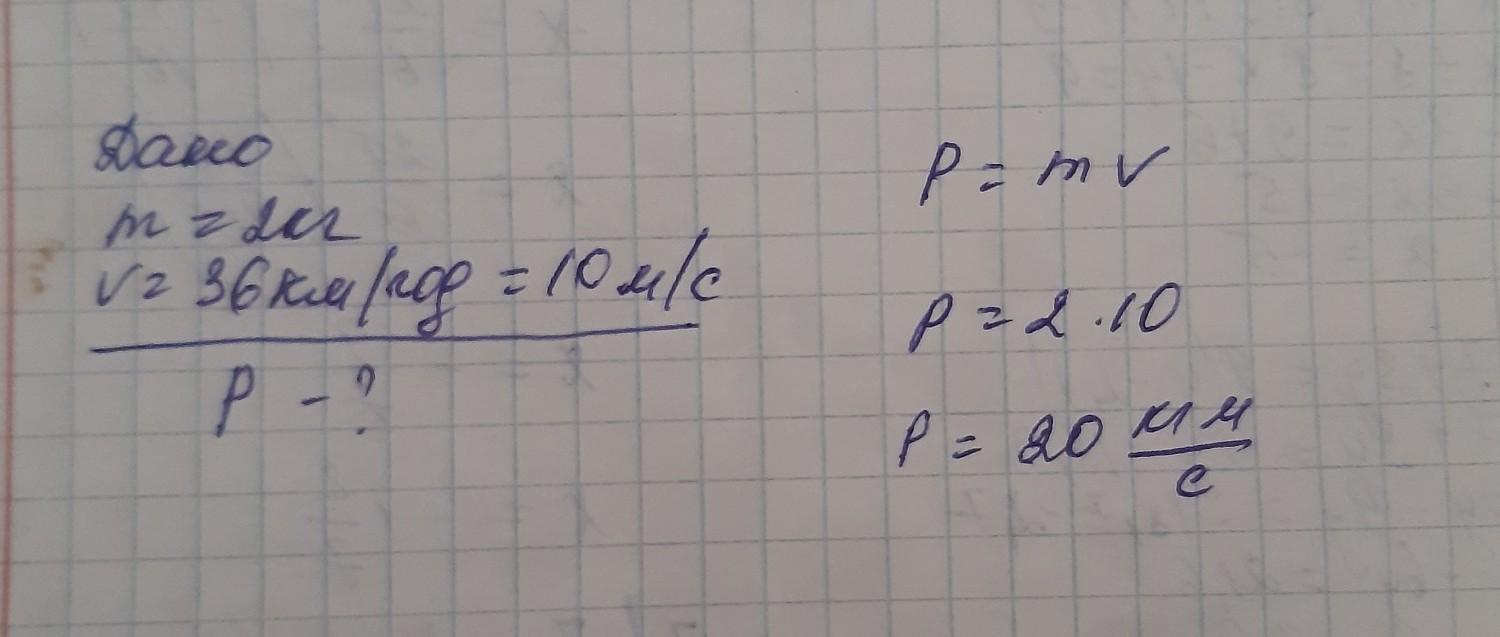 Дано
m = 2кг
v = 36км/год = 10м/с
P - ?
P = mv
P = 2 · 10
P = 20 кг м/с